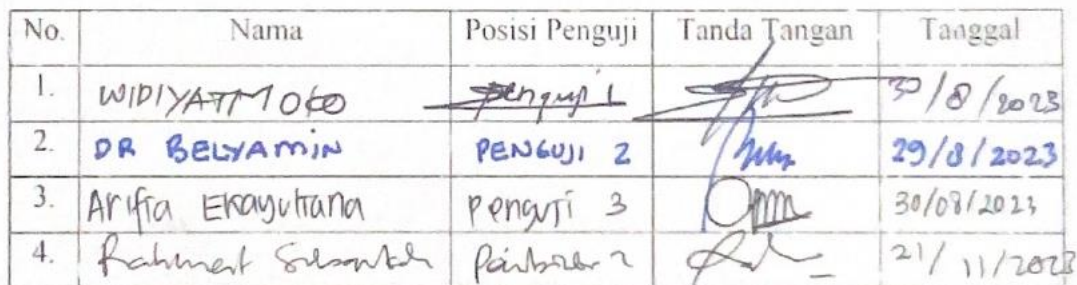 No. Nama Posisi Penguji Tanda Tangan Tanggal
1. WIDIYATMOKO Penguji 1 30/8/2023
2. DR BELYAMIN PENGUJI 2 29/8/2023
3. Arifia Ekayuliana Penguji 3 30/08/2023
4. Rahmat Subarkah 21/11/2023